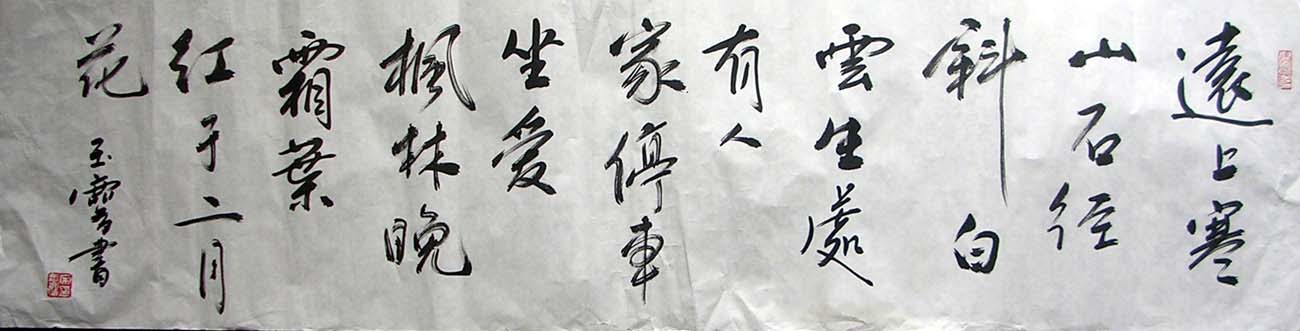 遠上寒
山石径
斜白
雲生處
有人
家停車
坐愛
楓林晚
霜葉
紅于二月
花
玉霜書